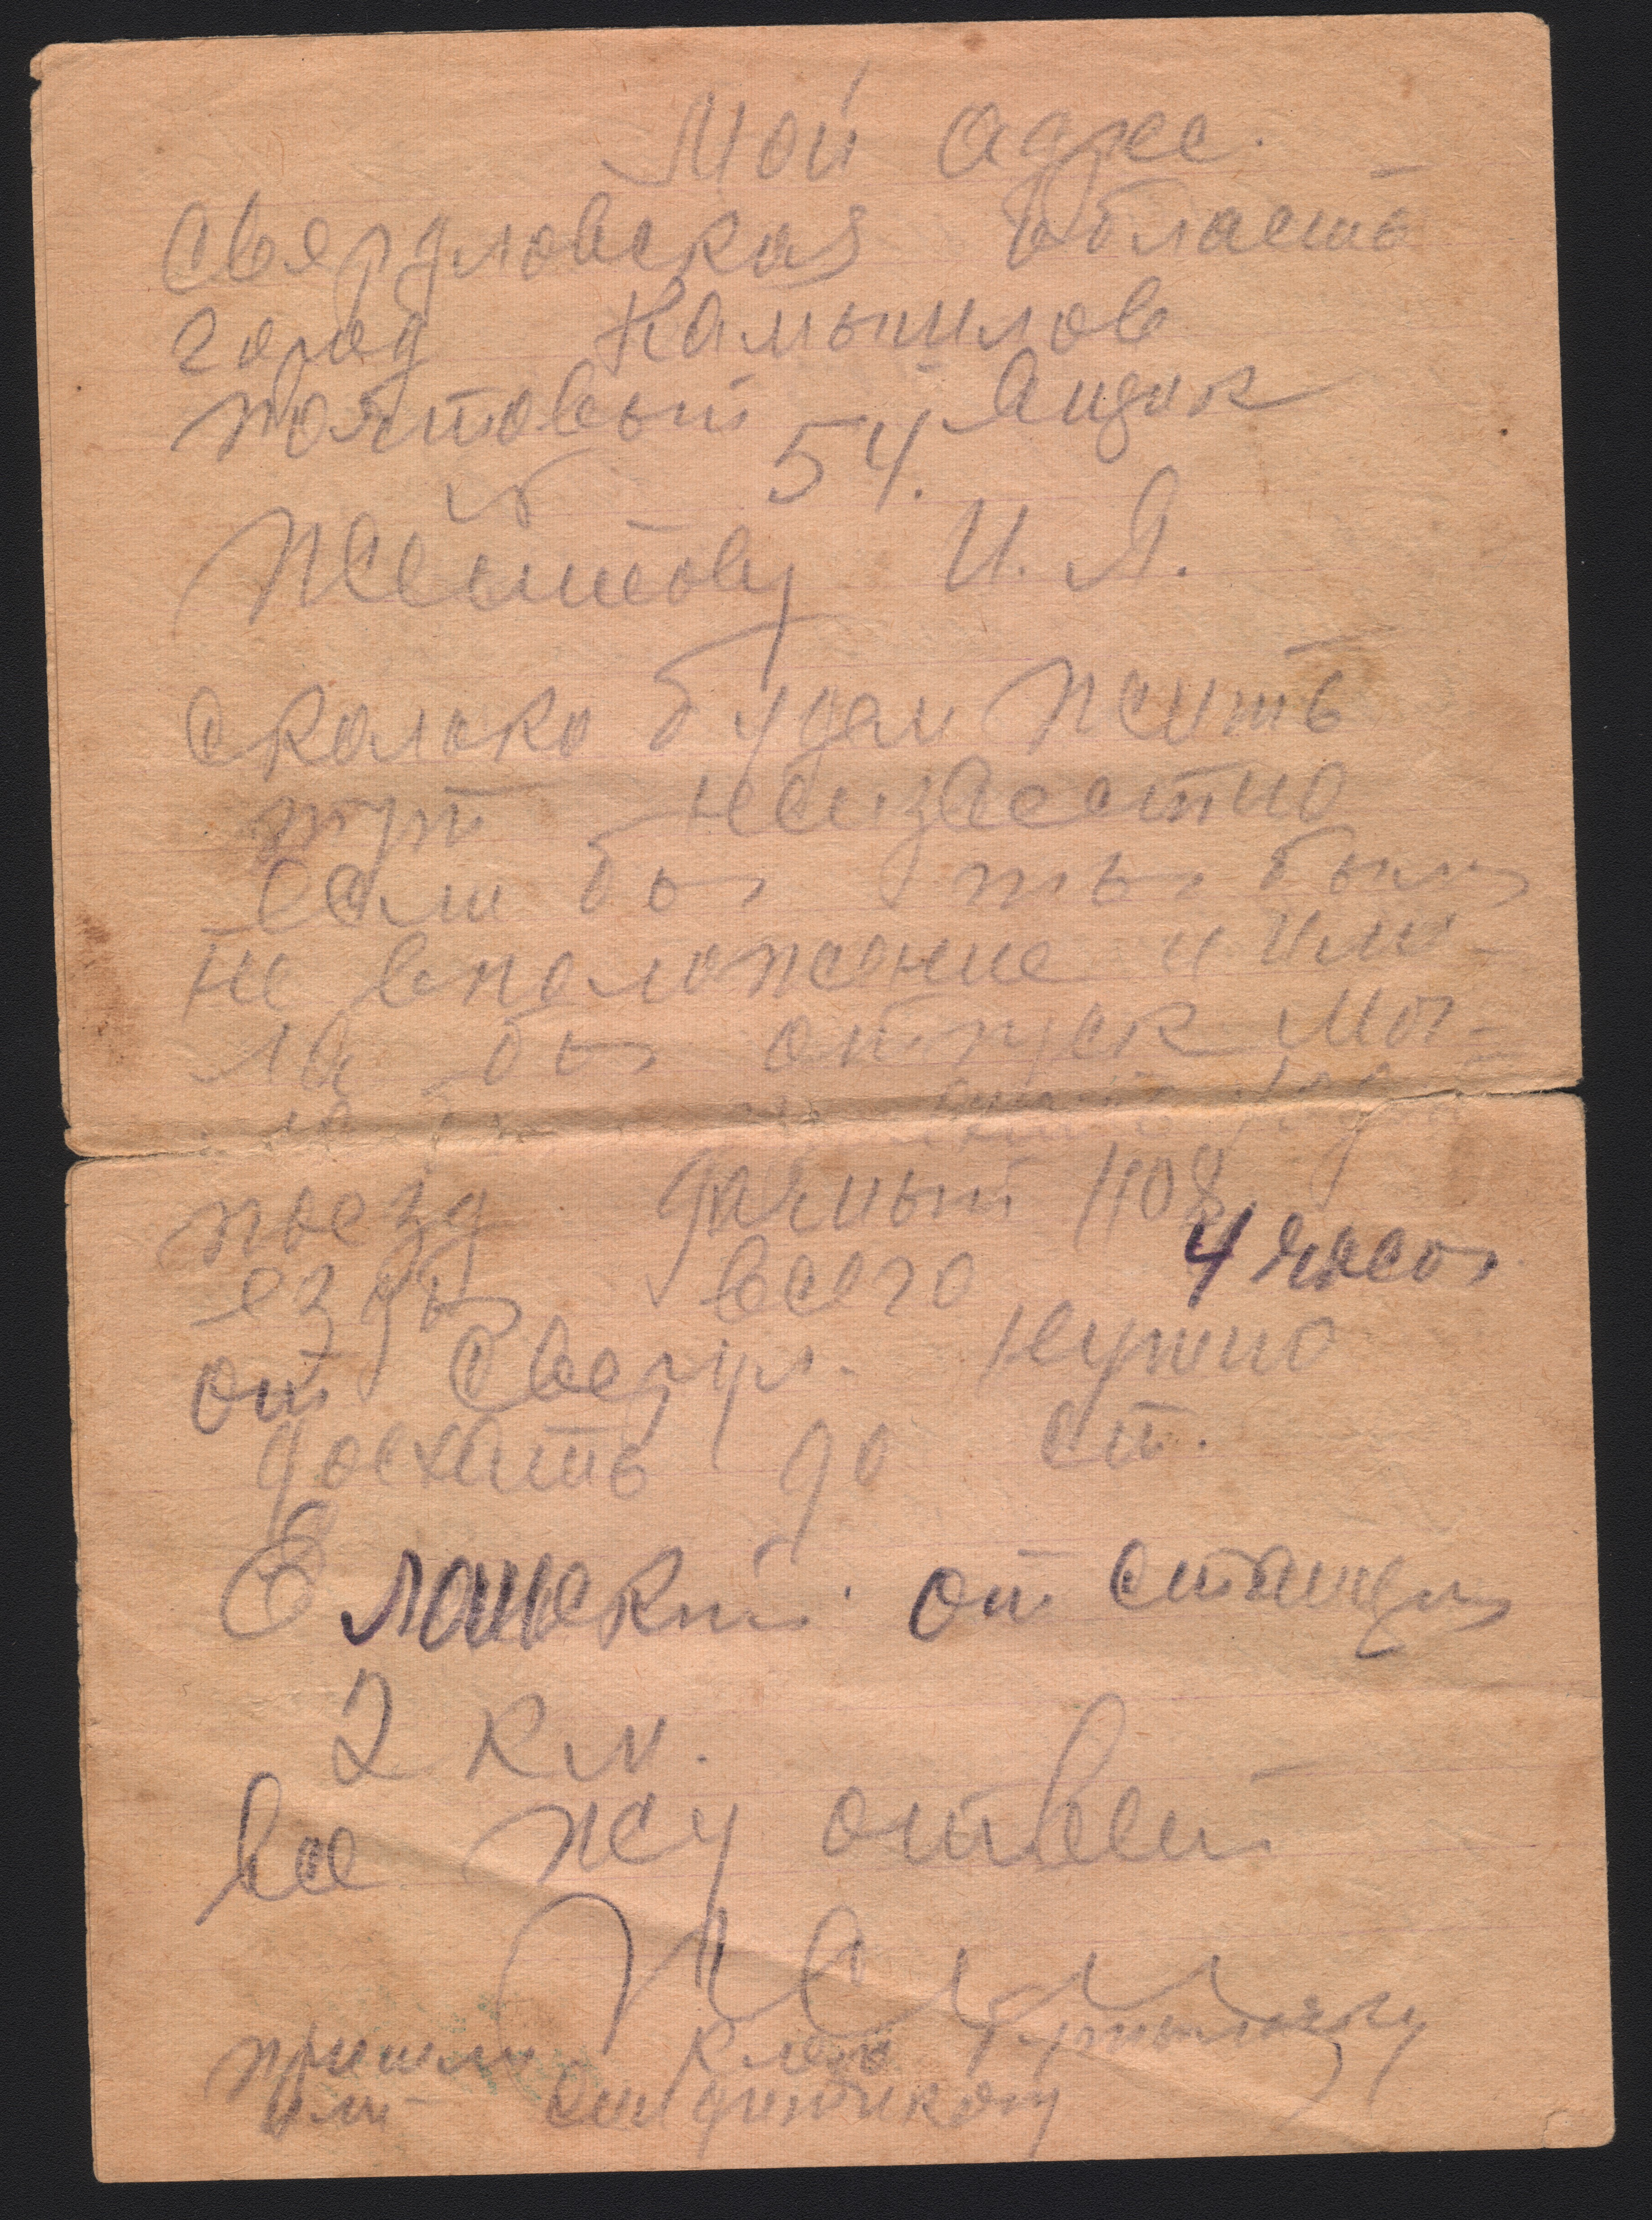 Мой адрес.
Свердловская область
город Камышлов
почтовый ящик
№ 54.
Желтову И. Я.
Сколько будем жить
тут неизвестно
если бы ты была
не вположение и име
ла бы отпуск мог-
ла бы
поезд дачный 1108
езды всего 4 часа
от Свердл. нужно
доехать до ст.
Еланский от станции
2 км.
все жду ответ
пришли клей бутылочку
или